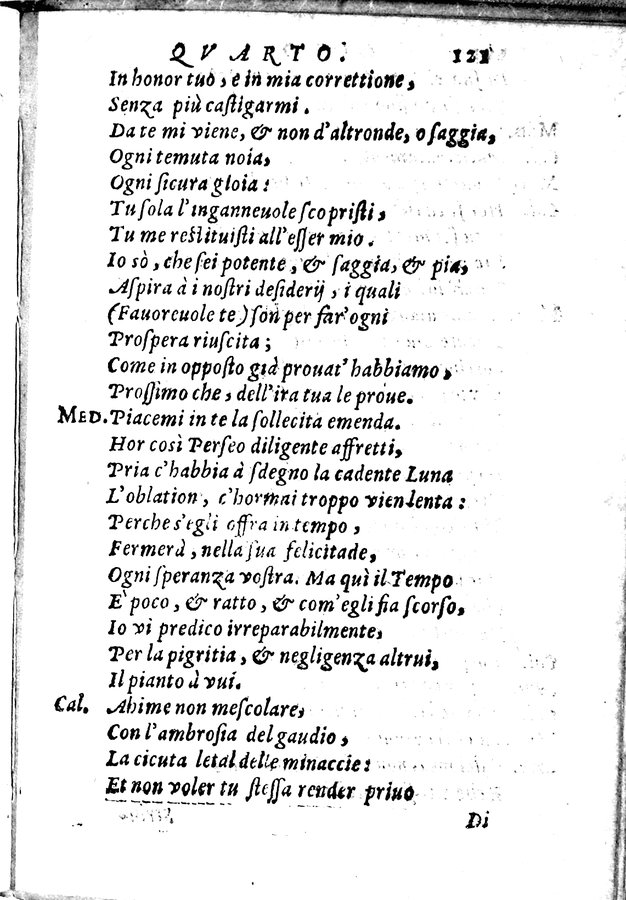 QVARTO. 121
In honor tuo, e in mia correttione,
Senza più castigarmi.
Da te mi viene, & non d'altronde, o saggia,
Ogni temuta noia,
Ogni sicura gioia:
Tu sola l'inganneuole scopristi,
Tu me restituisti all'esser mio.
Io sò, che sei potente, & saggia, & pia,
Aspira à i nostri desiderij, i quali
(Fauoreuole te) son per far'ogni
Prospera riuscita;
Come in opposto già prouat'habbiamo,
Prossimo che, dell'ira tua le proue.
MED. Piacemi in te la sollecita emenda.
Hor così Perseo diligente affretti,
Pria c'habbia à sdegno la cadente Luna
L'oblation, c'hormai troppo vien lenta:
Perche s'egli offra in tempo,
Fermerà, nella sua felicitade,
Ogni speranza vostra. Ma quì il Tempo
E' poco, & ratto, & com'egli fia scorso,
Io vi predico irreparabilmente,
Per la pigritia, & negligenza altrui,
Il pianto à vui.
Cal. Ahime non mescolare,
Con l'ambrosia del gaudio,
La cicuta letal delle minaccie:
Et non voler tu stessa render priuo
Di